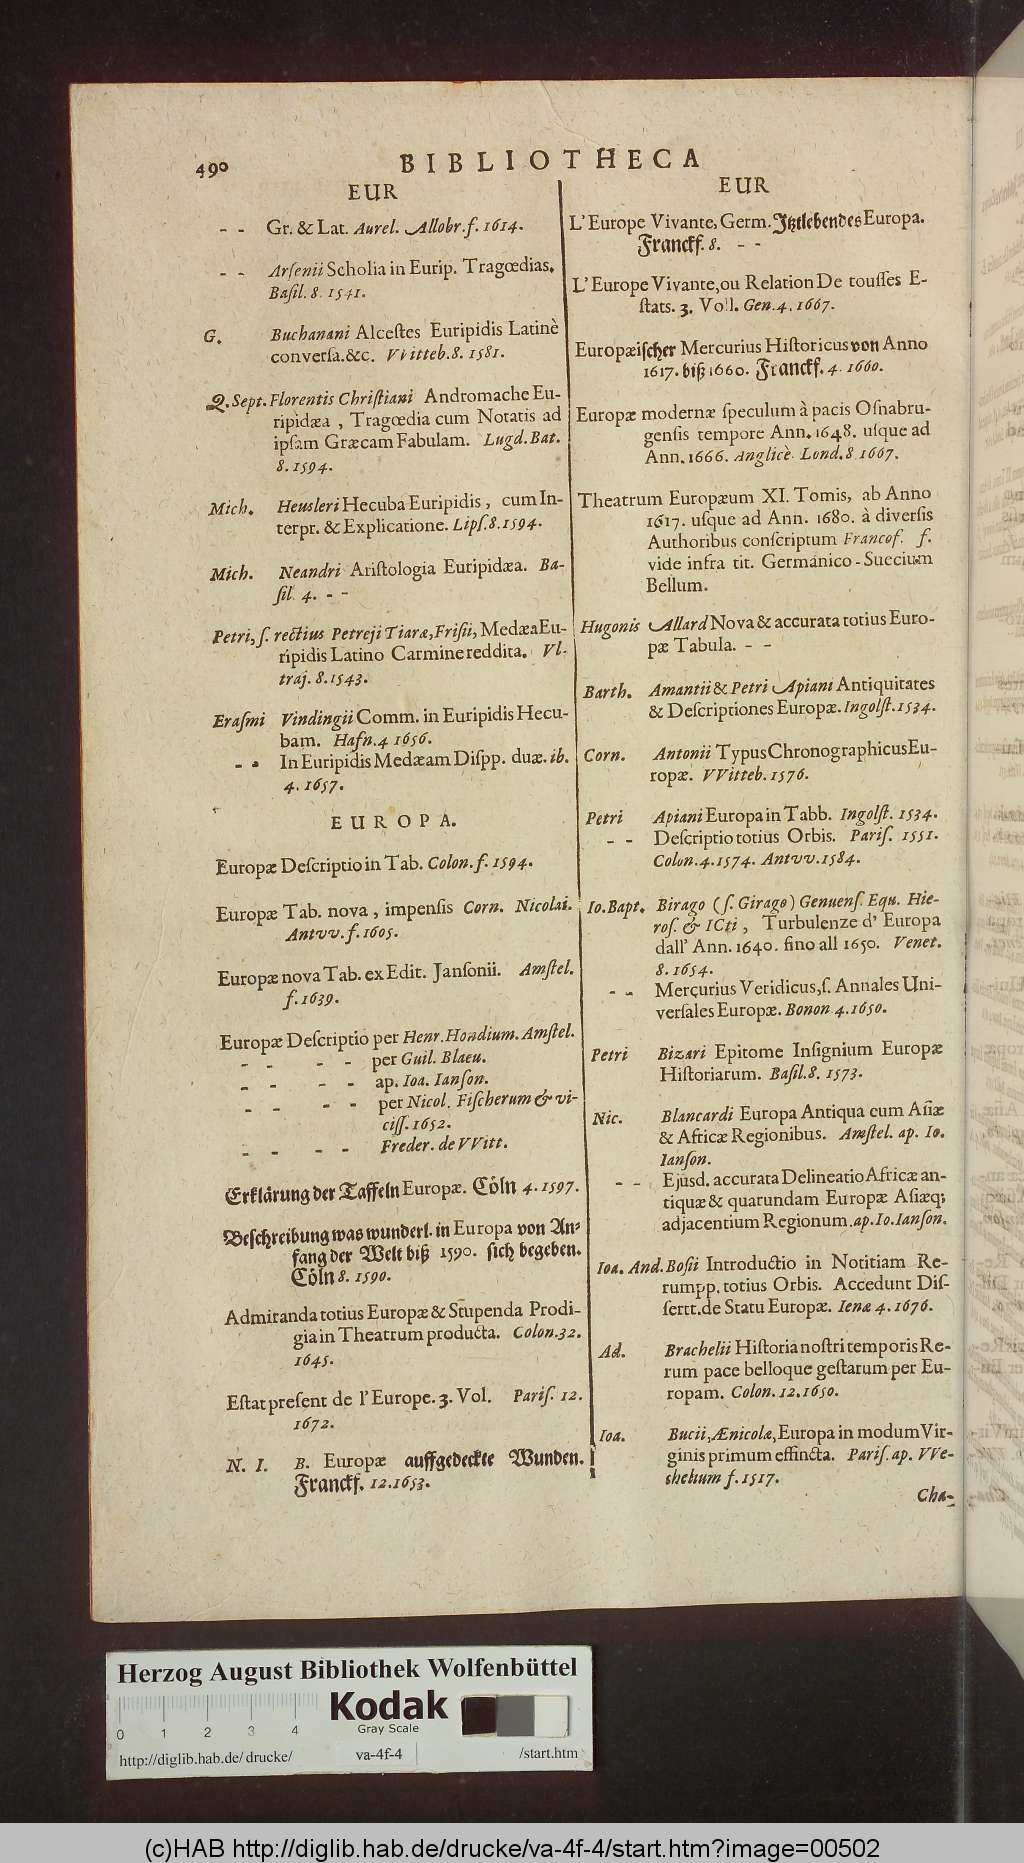 490 BIBLIOTHECA
EUR
- - Gr. & Lat. Aurel. Allobr. f. 1614.
- - Arſenii Scholia in Eurip. Tragœdias.
Baſil. 8. 1541.
G. Buchanani Alceſtes Euripidis Latinè
converſa. &c. VVitteb. 8. 1581.
Q. Sept. Florentis Chriſtiani Andromache Eu-
ripidæa, Tragœdia cum Notatis ad
ipſam Græcam Fabulam. Lugd. Bat.
8. 1594.
Mich. Heusleri Hecuba Euripidis, cum In-
terpr. & Explicatione. Lipſ. 8. 1594.
Mich. Neandri Ariſtologia Euripidæa. Ba-
ſil. 4. - -
Petri, ſ. rectius Petreji Tiaræ, Friſii, Medæa Eu-
ripidis Latino Carmine reddita. Vl-
traj. 8. 1543.
Eraſmi Vindingii Comm. in Euripidis Hecu-
bam. Hafn. 4 1656.
- - In Euripidis Medæam Diſpp. duæ. ib.
4. 1657.
EUROPA.
Europæ Deſcriptio in Tab. Colon. f. 1594.
Europæ Tab. nova, impenſis Corn. Nicolai.
Antvv. f. 1605.
Europæ nova Tab. ex Edit. Janſonii. Amſtel.
f. 1639.
Europæ Deſcriptio per Henr. Hondium. Amſtel.
- - - - per Guil. Blaeu.
- - - - ap. Ioa. Ianſon.
- - - - per Nicol. Fiſcherum & vi-
ciſſ. 1652.
- - - - Freder. de VVitt.
Erklärung der Taffeln Europæ. Cöln 4. 1597.
Beſchreibung was wunderl. in Europa von An-
fang der Welt biß 1590. ſich begeben.
Cöln 8. 1590.
Admiranda totius Europæ & Stupenda Prodi-
gia in Theatrum producta. Colon. 32.
1645.
Eſtat preſent de l'Europe. 3. Vol. Pariſ. 12.
1672.
N. I. B. Europæ auffgedeckte Wunden.
Franckf. 12. 1653.
EUR
L'Europe Vivante, Germ. Jtztlebendes Europa.
Franckf. 8. - -
L'Europe Vivante, ou Relation De touſſes E-
ſtats. 3. Voll. Gen. 4. 1667.
Europæiſcher Mercurius Hiſtoricus von Anno
1617. biß 1660. Franckf. 4. 1660.
Europæ modernæ ſpeculum à pacis Oſnabru-
genſis tempore Ann. 1648. uſque ad
Ann. 1666. Anglicè. Lond. 8. 1667.
Theatrum Europæum XI. Tomis, ab Anno
1617. uſque ad Ann. 1680. à diverſis
Authoribus conſcriptum Francof. f.
vide infra tit. Germanico-Succium
Bellum.
Hugonis Allard Nova & accurata totius Euro-
pæ Tabula. - -
Barth. Amantii & Petri Apiani Antiquitates
& Deſcriptiones Europæ. Ingolſt. 1534.
Corn. Antonii Typus Chronographicus Eu-
ropæ. VVitteb. 1576.
Petri Apiani Europa in Tabb. Ingolſt. 1534.
- - Deſcriptio totius Orbis. Pariſ. 1551.
Colon. 4. 1574. Antvv. 1584.
Io. Bapt. Birago (ſ. Girago) Genuenſ. Equ. Hie-
roſ. & ICti, Turbulenze d' Europa
dall' Ann. 1640. fino all 1650. Venet.
8. 1654.
- - Mercurius Veridicus, ſ. Annales Uni-
verſales Europæ. Bonon 4. 1650.
Petri Bizari Epitome Inſignium Europæ
Hiſtoriarum. Baſil. 8. 1573.
Nic. Blancardi Europa Antiqua cum Aſiæ
& Africæ Regionibus. Amſtel. ap. Io.
Ianſon.
- - Ejusd. accurata Delineatio Africæ an-
tiquæ & quarundam Europæ Aſiæq;
adjacentium Regionum. ap. Io. Ianſon.
Ioa. And. Boſii Introductio in Notitiam Re-
rumpp. totius Orbis. Accedunt Diſ-
ſertt. de Statu Europæ. Ienæ 4. 1676.
Ad. Brachelii Hiſtoria noſtri temporis Re-
rum pace belloque geſtarum per Eu-
ropam. Colon. 12. 1650.
Ioa. Bucii, Ænicolæ, Europa in modum Vir-
ginis primum effincta. Pariſ. ap. VVe-
chelium f. 1517.
Cha-
Herzog August Bibliothek Wolfenbüttel
Kodak
Gray Scale
0 1 2 3 4
http://diglib.hab.de/drucke/ va-4f-4 /start.htm
(c)HAB http://diglib.hab.de/drucke/va-4f-4/start.htm?image=00502